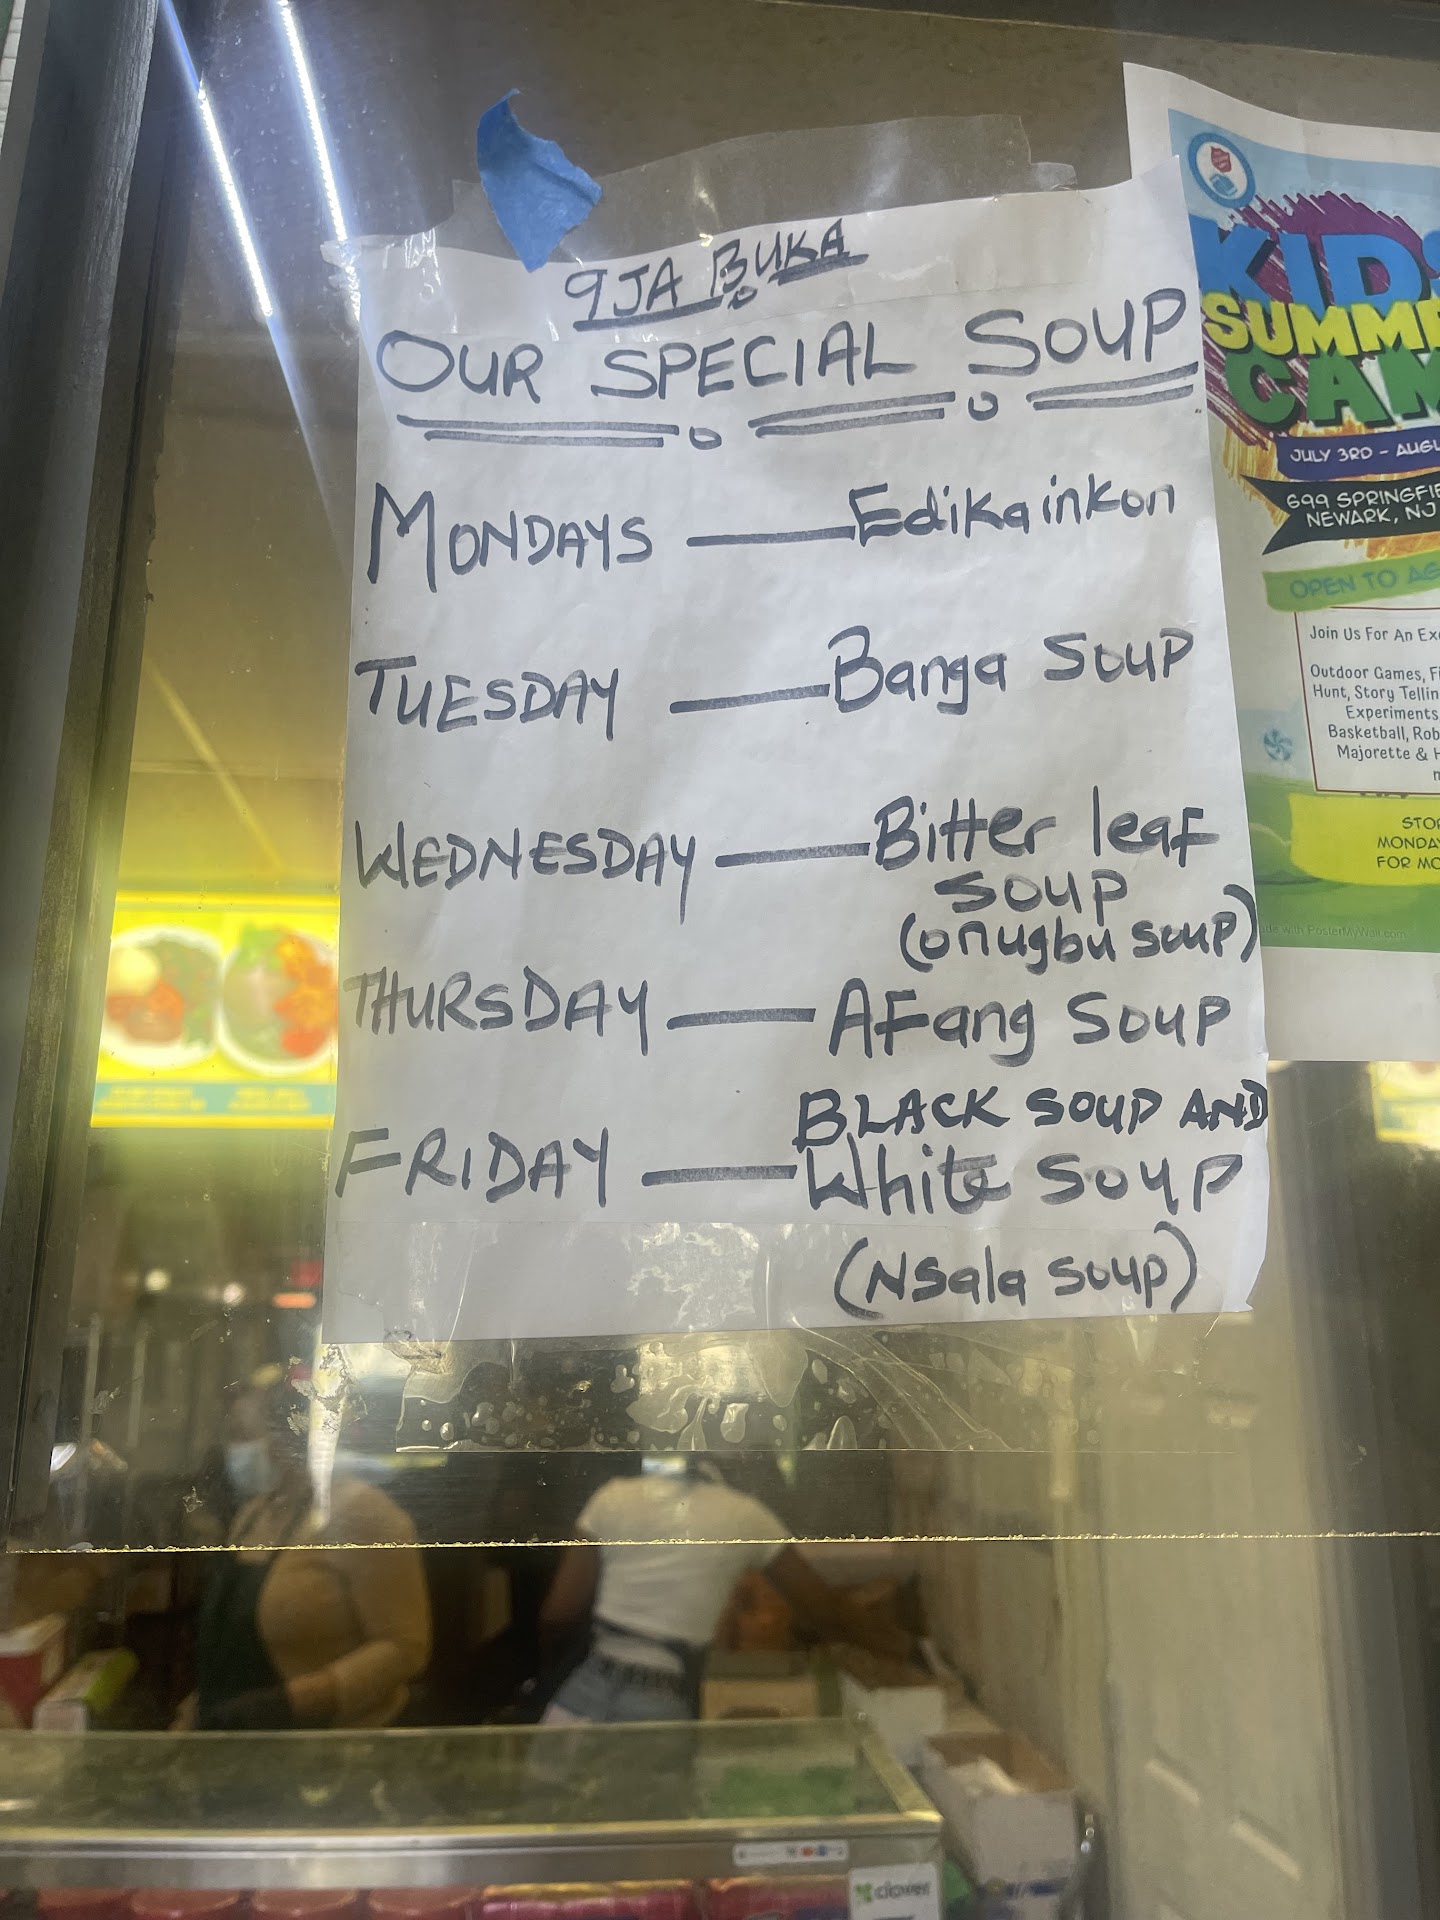 9JA BUKA
OUR SPECIAL SOUP
MONDAYS — Edikainkon
TUESDAY — Banga SOUP
WEDNESDAY — Bitter leaf
SOUP
(onugbu soup)
THURSDAY — AFang SOUP
BLACK SOUP AND
FRIDAY — White SOUP
(NSala soup)
KIDS
SUMME
CAM
JULY 3RD - AUGU
699 SPRINGFIE
NEWARK, NJ
OPEN TO AG
Join Us For An Ex
Outdoor Games, Fi
Hunt, Story Tellin
Experiments,
Basketball, Rob
Majorette & H
STO
MONDA
FOR MO
de with PosterMyWall.com
clover